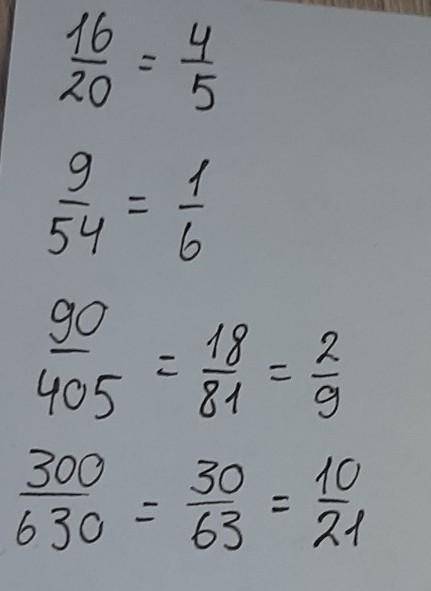 16/20 = 4/5
9/54 = 1/6
90/405 = 18/81 = 2/9
300/630 = 30/63 = 10/21